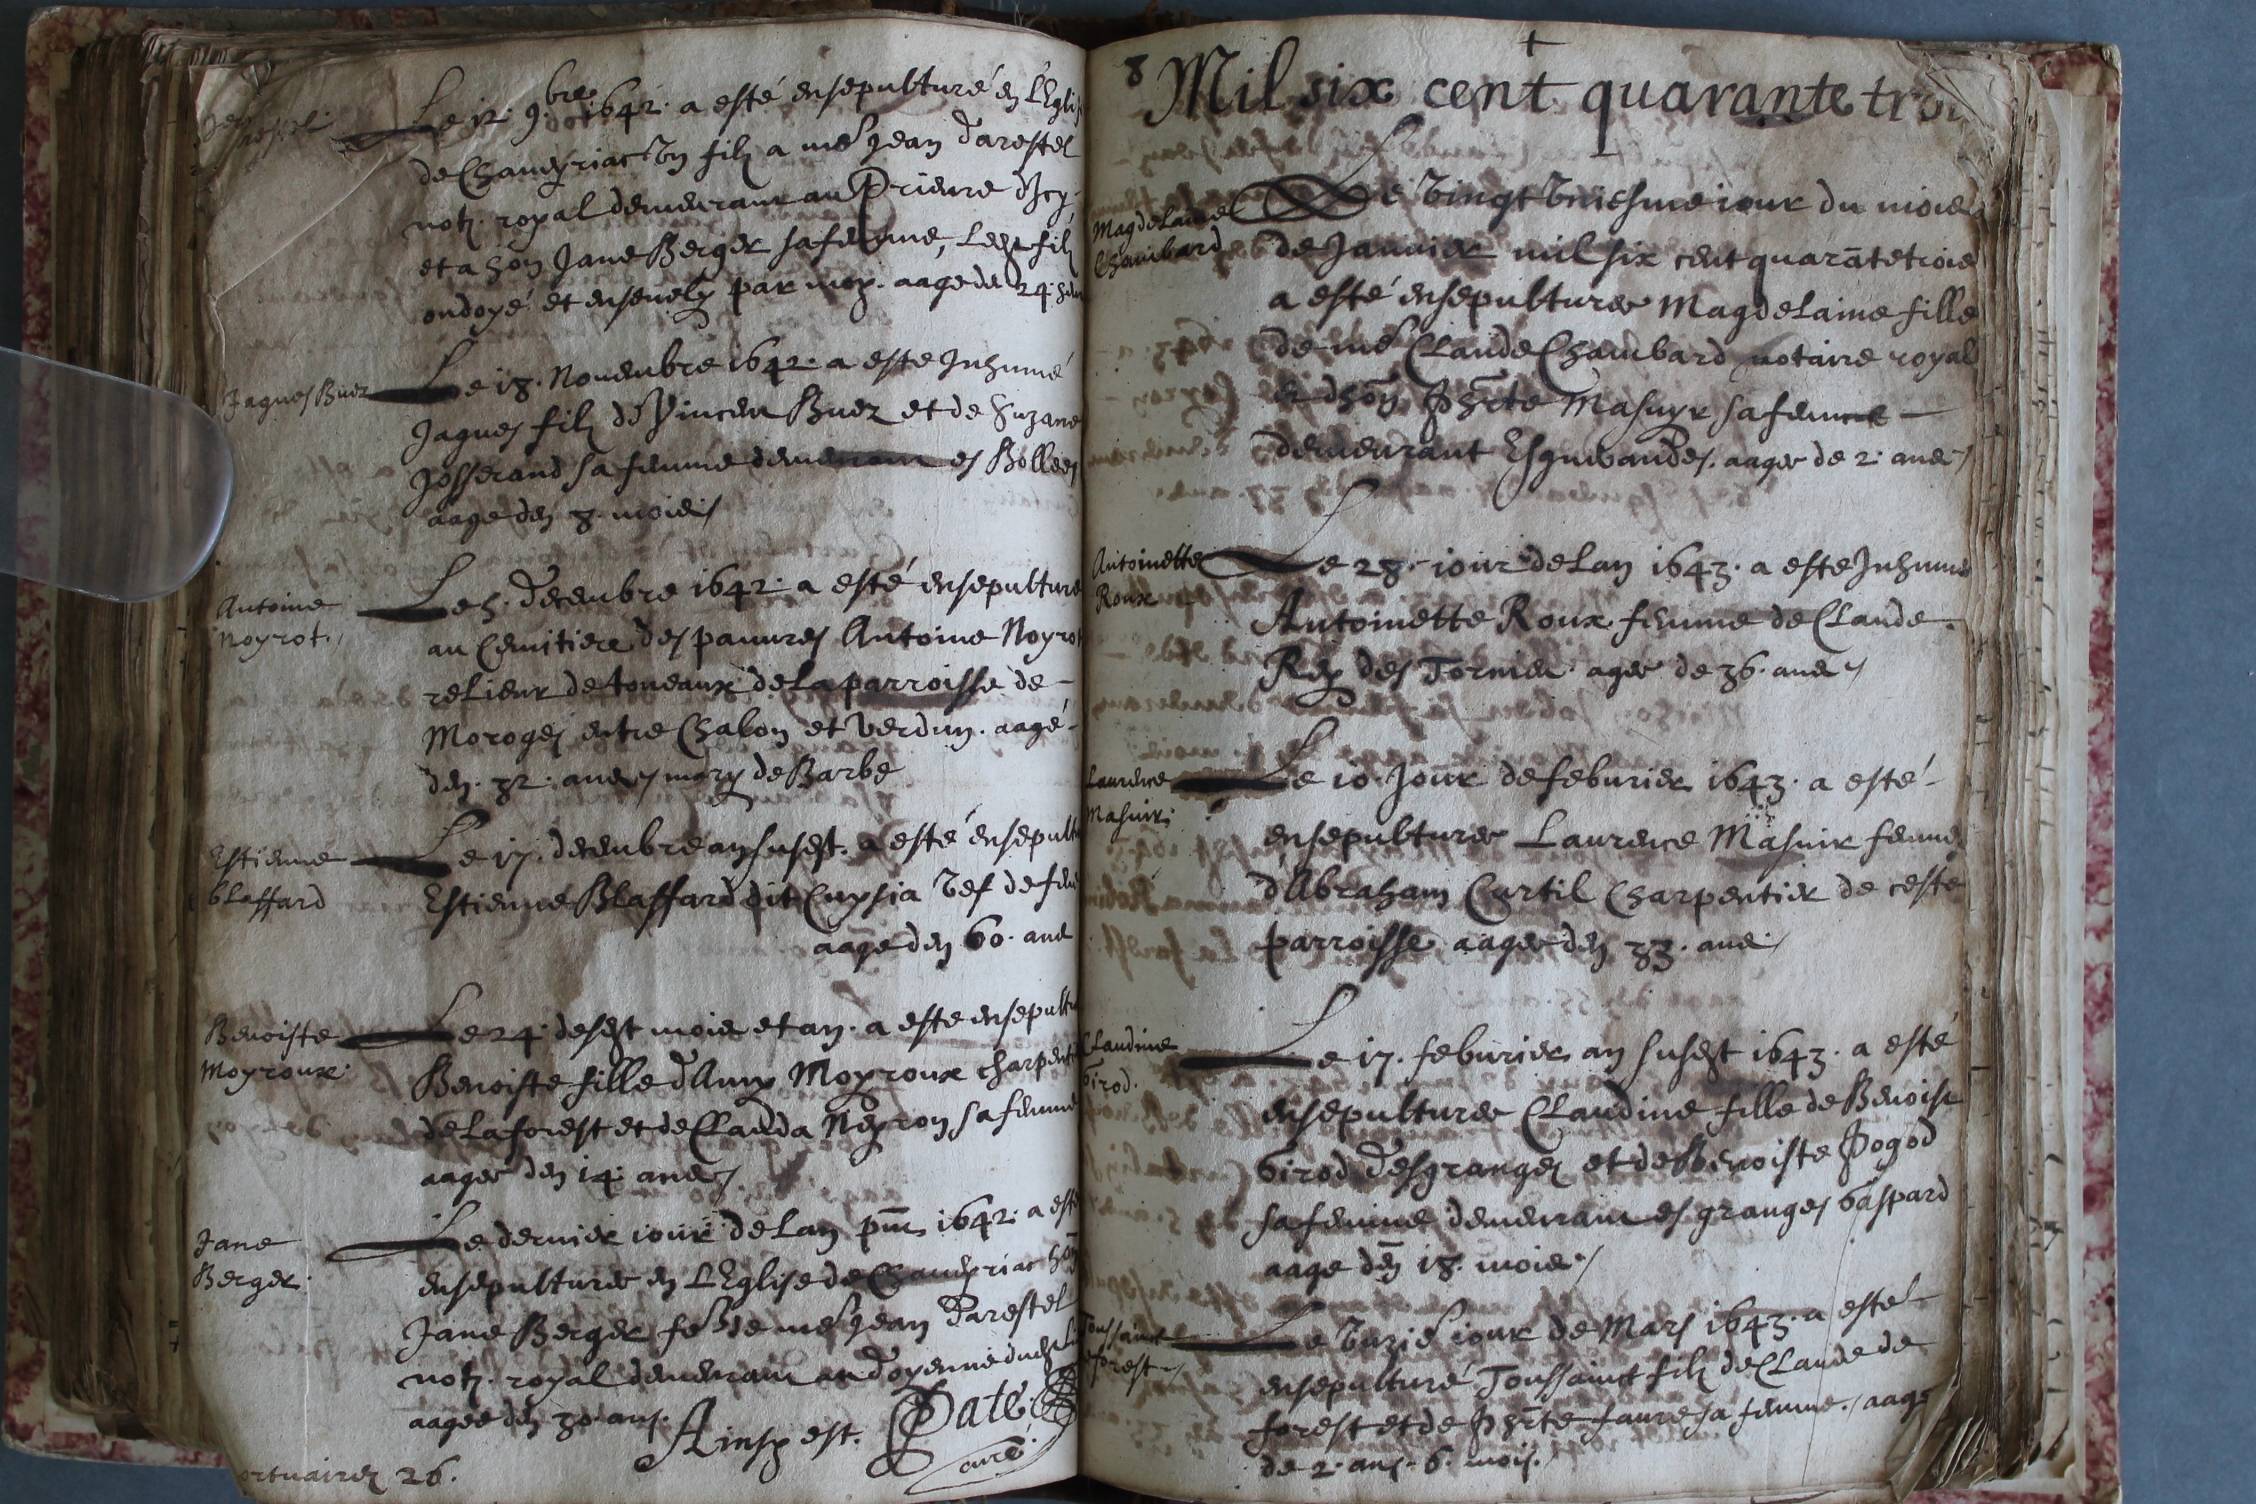 Le 12. 9.bre 1642. a esté ensepulturé en l'Eglis
de Chaueyriac Vn filz a me Jean Darestel
notz. royal demeurant au Prieure d'Icy
et a hon Jane Berger sa femme, Ledit filz
ondoyé et enseuely par moy. aage de 24. heu
Jaques Buez
Le 18. Nouembre 1642. a este Inhumé
Jaques filz de Vincen Buez et de Suzane
Josserand sa femme demeurant es Bollees
aage den 8. mois
Antoine
Noyrot.
Le 5. decembre 1642. a esté ensepulture
au Cemitiere des pauures Antoine Noyrot
relieur de toneaux de la parroisse de
Moroges entre Chalon et Verdun. aagé
den. 32. ans mary de Barbe
Estienne
blaffard
Le 17. decembre an susdt. a esté ensepultu
Estienne Blaffard dit Cuysia Vef de feu
aage den 60. ans
Benoiste
Moyroux.
Le 24. desdt mois et an. a este ensepultu
Benoiste fille d'Amy Moyroux charpenti
de Laforest et de Clauda Neyron sa femme
aagee den 14. ans
Jane
Berger.
Le dernier iour de Lan pnt 1642. a este
ensepulturee en L'Eglise de Chaueyriac hon
Jane Berger fe de me Jean Darestel
notz. royal demeurant au doyenné dudt
aagee den 30. ans. Ainsy est. Paté
curé.
ortuaires 26.
8 Mil six cent quarante troi
Magdelaine
Chambard
Le Vingt Vniesme iour du mois
de Januier mil six cent quarãte trois
a esté ensepulturee Magdelaine fille
de me Claude Chambard notaire royal
et d'hon Phrte Masuyr sa femme
demeurant Esguibandes. aagee de 2. ans
Antoinette
Roux
Le 28. iour de Lan 1643. a este Inhumee
Antoinette Roux femme de Claude
Rey des Tornier. agee de 36. ans
Laurence
Masuir.
Le 10. Jour de feburier 1643. a esté
ensepulturee Laurence Masuir femme
d'Abraham Curtil Charpentier de ceste
parroisse aagee den 33. ans
Claudine
Girod.
Le 17. feburier an susdt 1643. a esté
ensepulturee Claudine fille de Benoist
Girod desgranges et de Benoiste Pogod
sa femme demeurant es granges Gaspard
aage den 18. mois
Toussainct
forest
Le Vnzie iour de Mars 1643. a esté
ensepulturé Toussainct filz de Claude de
forest et de Phrte faure sa femme. aage
de 2. ans. 6. mois.